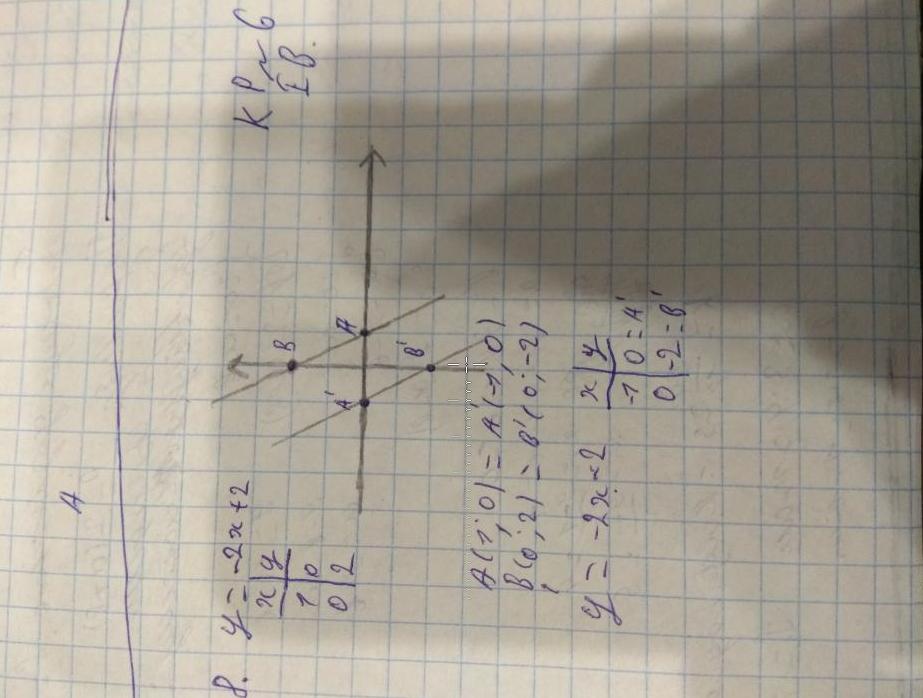 A
КР № 6
I В.
8. y = -2x+2
x | y
1 | 0
0 | 2
B
A
A'
B'
A(1; 0) = A'(-1; 0)
B(0; 2) = B'(0; -2)
y = -2x-2
x | y
-1 | 0 = A'
0 | -2 = B'